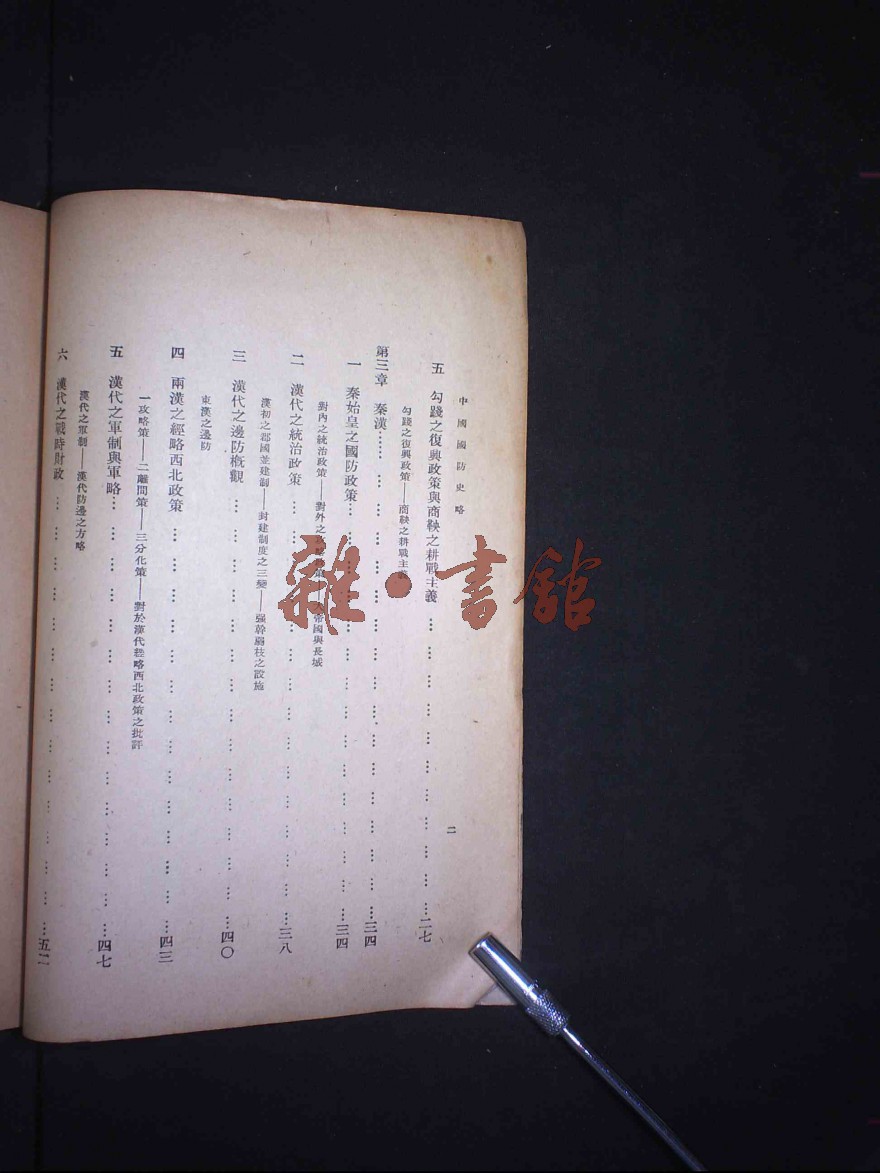 中國國防史略
二
五 勾踐之復興政策與商鞅之耕戰主義…………二七
勾踐之復興政策——商鞅之耕戰主義
第三章 秦漢…………三四
一 秦始皇之國防政策…………三四
對內之統治政策——對外之 帝國與長城
二 漢代之統治政策…………三八
漢初之郡國並建制——封建制度之三變——强幹弱枝之設施
三 漢代之邊防概觀…………四〇
東漢之邊防
四 兩漢之經略西北政策…………四三
一攻略策——二離間策——三分化策——對於漢代經略西北政策之批評
五 漢代之軍制與軍略…………四七
漢代之軍制——漢代防邊之方略
六 漢代之戰時財政…………五二
雜·書館